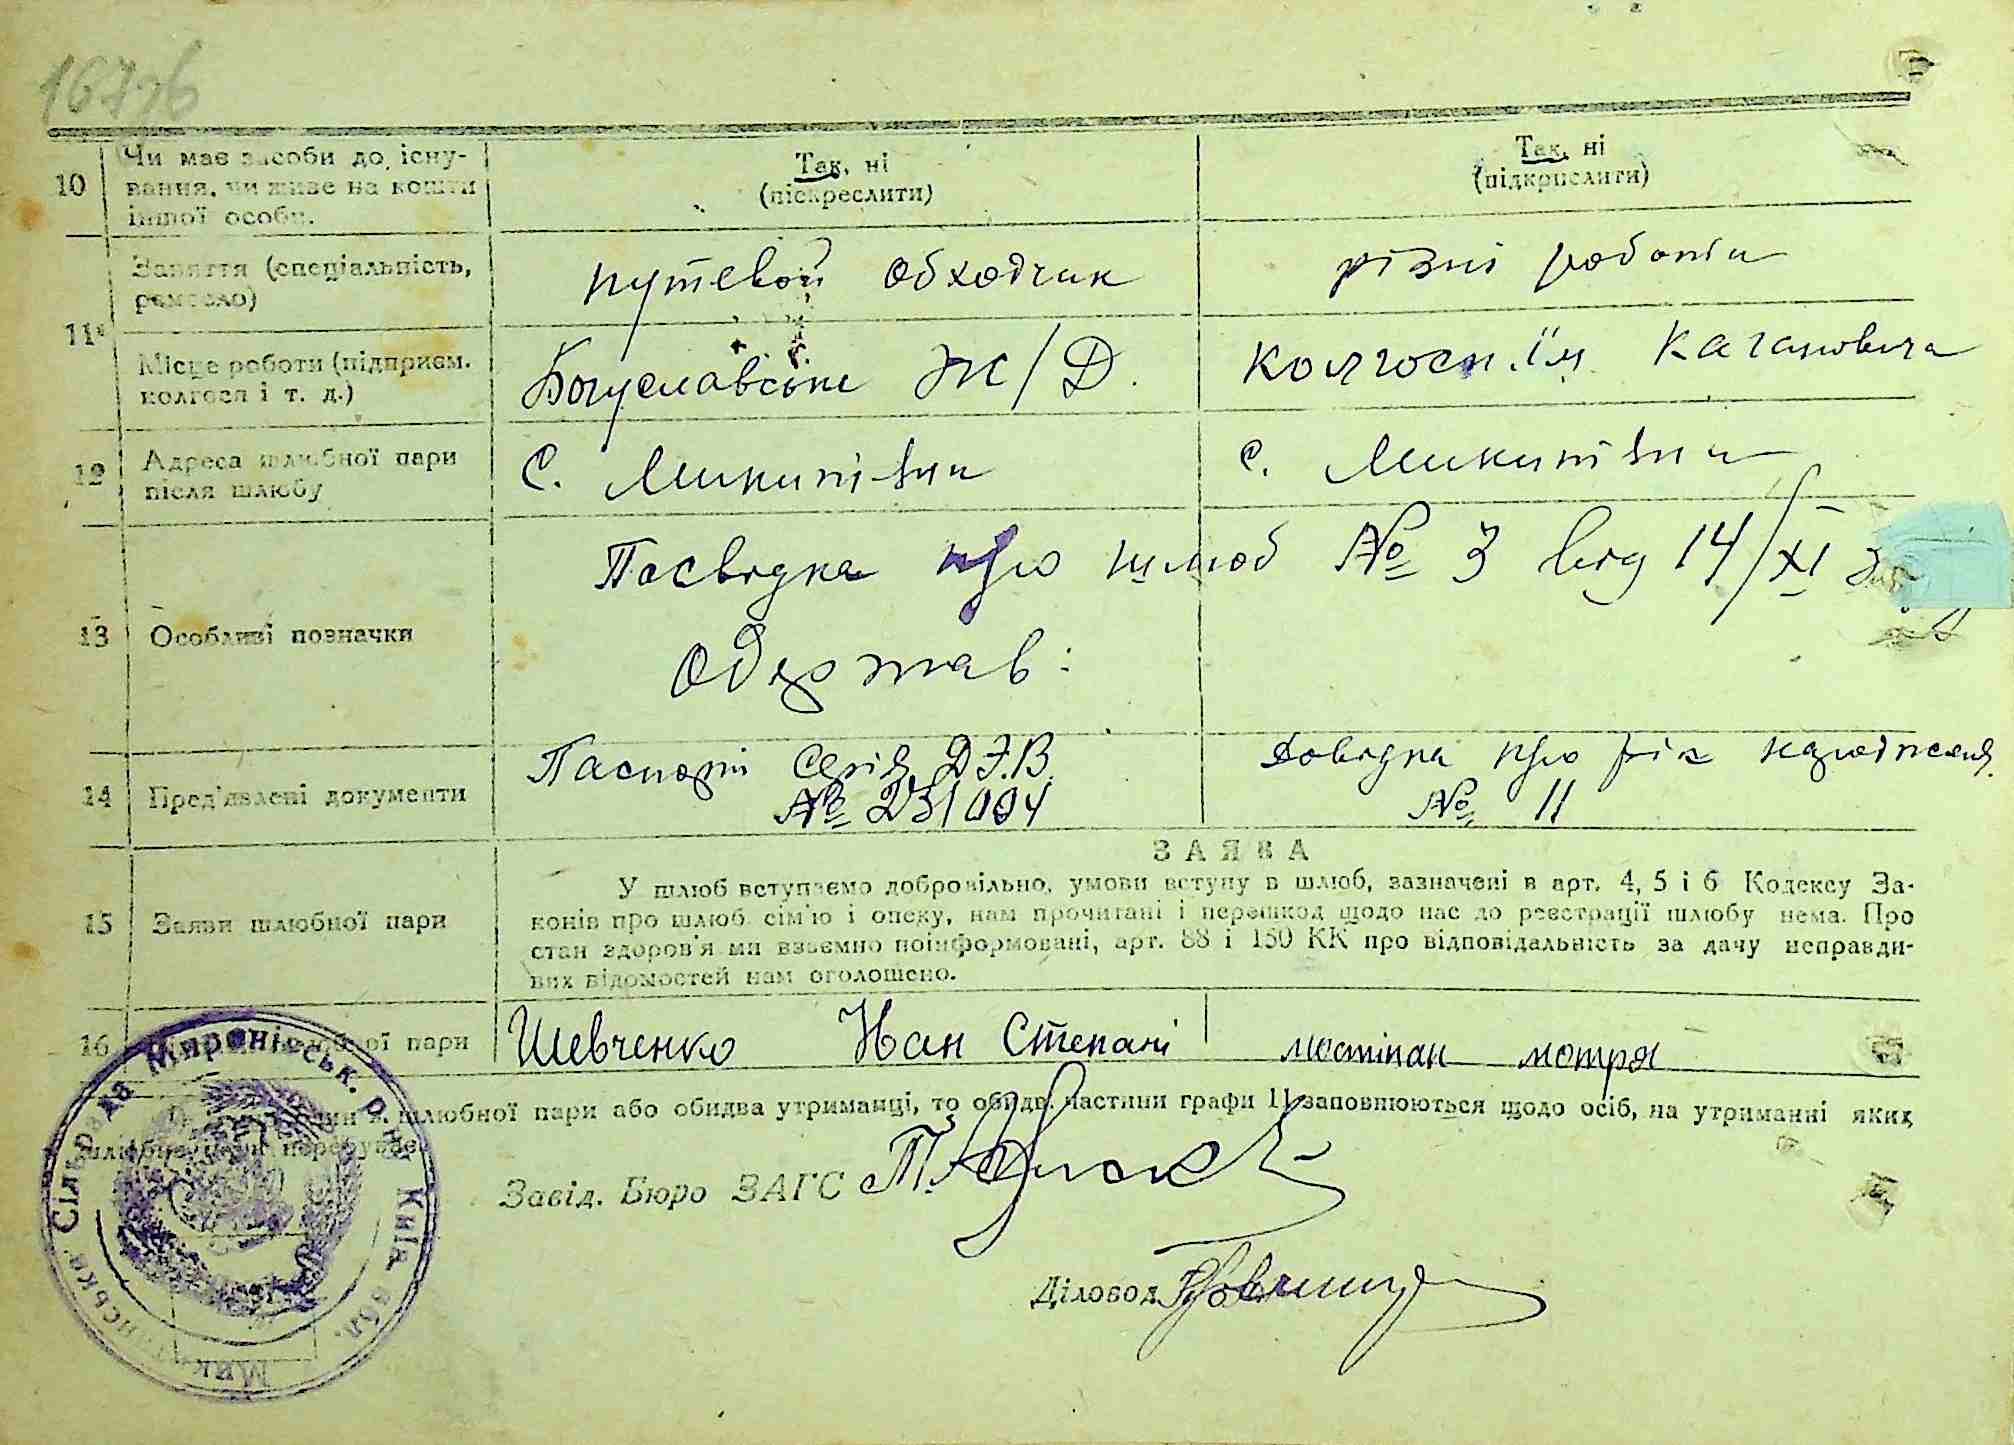 16776
10 Чи має засоби до існу-
вання, чи живе на кошти
іншої особи.
Так, ні
(піскреслити)
Так, ні
(підкрислити)
11
Заняття (спеціальність,
ремесло)
путевой обходчик
різні роботи
Місце роботи (підприєм.
колгосп і т. д.)
Богуславське Ж/Д.
колгосп. ім Кагановича
12 Адреса шлюбної пари
після шлюбу
с. Микитівки
с. Микитівки
13 Особливі позначки
Посвідка про шлюб № 3 від 14/XI
Одержав:
14 Пред'явлені документи
Паспорт Серія
№ 231094
Довідка про рік народження
№ 11
15 Заяви шлюбної пари
ЗАЯВА
У шлюб вступаємо добровільно, умови вступу в шлюб, зазначені в арт. 4, 5 і 6 Кодексу За-
конів про шлюб сім'ю і опеку, нам прочитані і перешкод щодо нас до реєстрації шлюбу нема. Про
стан здоров'я ми взаємно поінформовані, арт. 88 і 150 КК про відповідальність за дачу неправди-
вих відомостей нам оголошено.
16 пари
Шевченко Иван Степані
мостіпан мотря
шлюбної пари або обидва утриманці, то обидві частини графи 11 заповнюються щодо осіб, на утриманні яких
шлюбна пара перебуває.
Завід. Бюро ЗАГС
Діловод
Сільрада Миронівськ. р-ну Київ. обл.